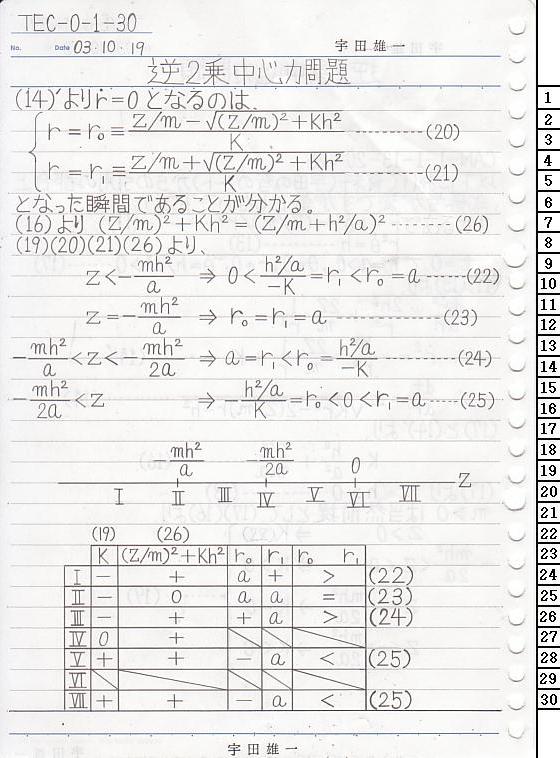 TEC-0-1-30
No. Date 03・10・19 宇田雄一
逆2乗中心力問題
(14)'よりṙ=0となるのは、
r = r₀ ≡ (Z/m − √((Z/m)² + Kh²))/K ---------- (20)
r = r₁ ≡ (Z/m + √((Z/m)² + Kh²))/K ---------- (21)
となった瞬間であることが分かる。
(16)より (Z/m)² + Kh² = (Z/m + h²/a)² -------- (26)
(19)(20)(21)(26)より、
Z < −mh²/a ⇒ 0 < (h²/a)/−K = r₁ < r₀ = a ------ (22)
Z = −mh²/a ⇒ r₀ = r₁ = a ------ (23)
−mh²/a < Z < −mh²/2a ⇒ a = r₁ < r₀ = (h²/a)/−K ------ (24)
−mh²/2a < Z ⇒ −(h²/a)/K = r₀ < 0 < r₁ = a ----- (25)
−mh²/a −mh²/2a 0 Z
I II III IV V VI VII
(19) (26)
K (Z/m)²+Kh² r₀ r₁ r₀ r₁
I − + a + > (22)
II − 0 a a = (23)
III − + + a > (24)
IV 0 +
V + + − a < (25)
VI
VII + + − a < (25)
宇田雄一
1
2
3
4
5
6
7
8
9
10
11
12
13
14
15
16
17
18
19
20
21
22
23
24
25
26
27
28
29
30